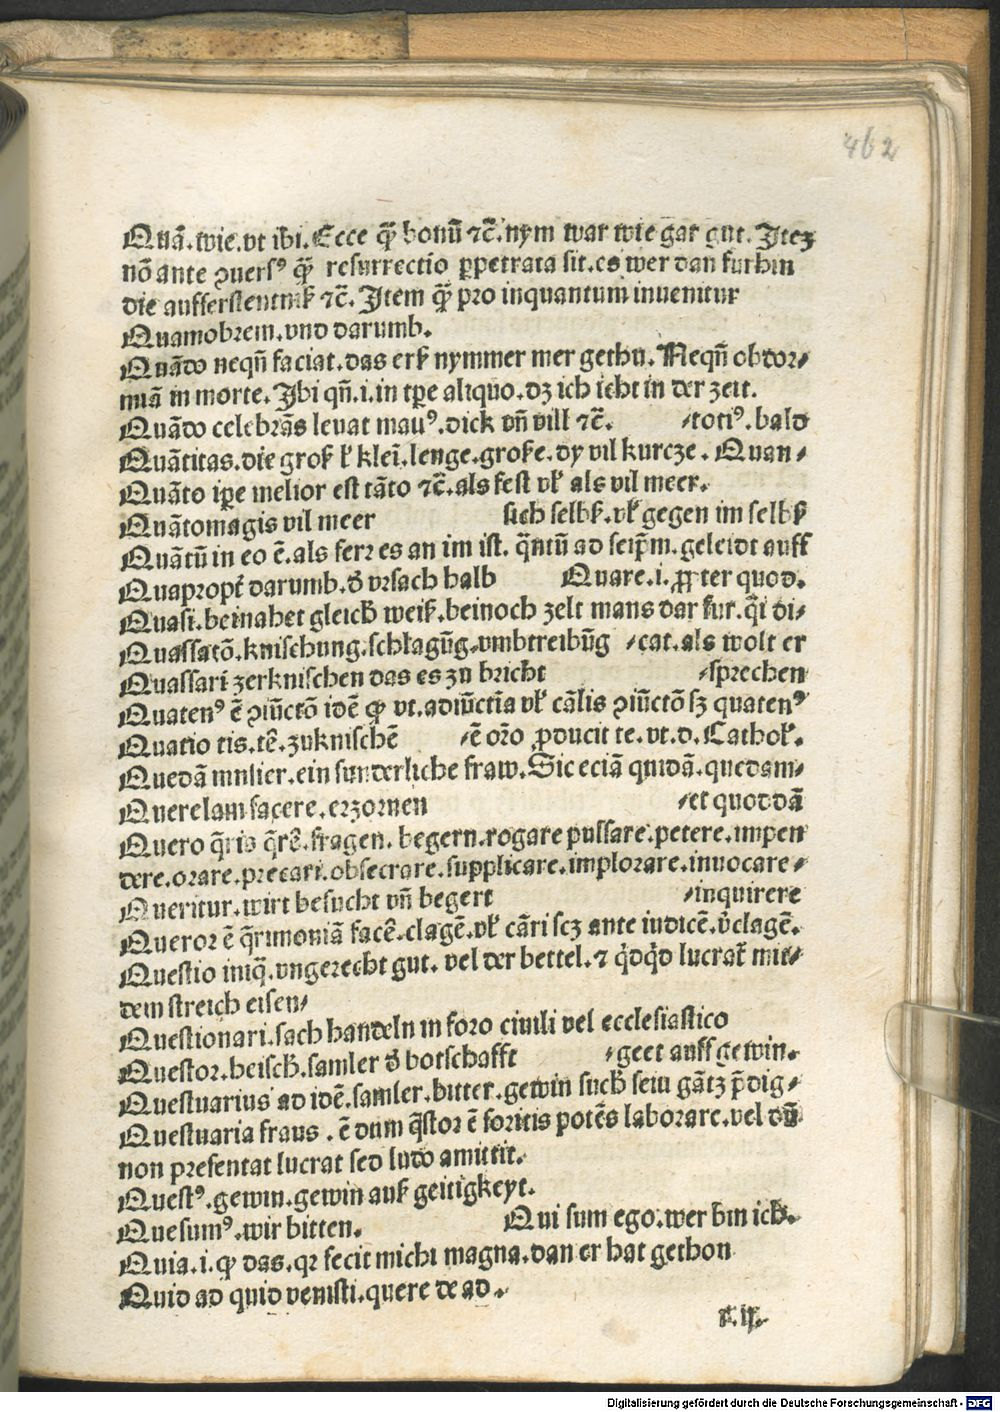 462
Quā. wie. vt ibi. Ecce qͫ bonū ⁊c̄. nym war wie gar gut. Itez
nō ante ꝯuersꝰ qͫ resurrectio ꝑpetrata sit. es wer dan furhin
die aufferstentniß ⁊c̄. Item qͫ pro inquantum inuenitur
Quamobrem. vnd darumb.
Quādo nequn̄ faciat. das erß nymmer mer gethu. Nequn̄ obdor⸗
miā in morte. Ibi qn̄. i. in tꝑe aliquo. dz ich icht in der zeit.
Quādo celebrās leuat manꝰ. dick vn̄ vill ⁊c̄. ⸗totiꝰ. bald
Quātitas. die groß ł kleī. lenge. große. dy vil kurcze. Quan⸗
Quāto ip̄e melior est tāto ⁊c̄. als fest vł als vil meer.
Quātomagis vil meer sich selbß. vł gegen im selbß
Quātū in eo ē. als ferr es an im ist. q̄ntū ad seip̄m. geleidt auff
Quapropt̄ darumb. d̄ vrsach halb Quare. i. ꝓpter quod.
Quasi. beinahet gleich weiß. beinoch zelt mans dar fur. q̄i di⸗
Quassatō. knischung. schlagūg. vmbtreibūg ⸗cat. als wolt er
Quassari zerknischen das es zu bricht ⸗sprechen
Quatenꝰ ē ꝯiūctō idē ꝙ vt. adiūctīa vł cālis ꝯiūctō sz quatenꝰ
Quatio tis. tē. zuknischē ⸗ē orō ꝓducit te. vt. d. Cathoł.
Quedā mulier. ein sunderliche fraw. Sic eciā quidā. quedam⸗
Querelam facere. erzornen ⸗et quoddā
Quero q̄ris q̄rē. fragen. begern. rogare pulsare. petere. impen
dere. orare. precari. obsecrare. supplicare. implorare. inuocare⸗
Queritur. wirt besucht vn̄ begert ⸗inquirere
Queror ē q̄rimoniā facē. clagē. vł cāri scz ante iudicē. v̄clagē.
Questio iniq̄. vngerecht gut. vel der bettel. ⁊ q̇dq̇d lucrat̄ mit⸗
dem streich eisen⸗
Questionari. sach handeln in foro ciuili vel ecclesiastico
Questor. heisch. samler d̄ botschafft ⸗geet auff gewin.
Questuarius ad idē. samler. bitter. gewin such sein gātz p̄dig⸗
Questuaria fraus. ē dum q̄stor ē fortis potēs laborare. vel dū
non presentat lucrat sed ludo amittit.
Questꝰ. gewin. gewin auß geitigkeyt.
Quesumꝰ. wir bitten. Qui sum ego. wer bin ich.
Quia. i. ꝙ das. qꝛ fecit michi magna. dan er hat gethon
Quid ad quid venisti. quere de ad.
Digitalisierung gefördert durch die Deutsche Forschungsgemeinschaft - DFG